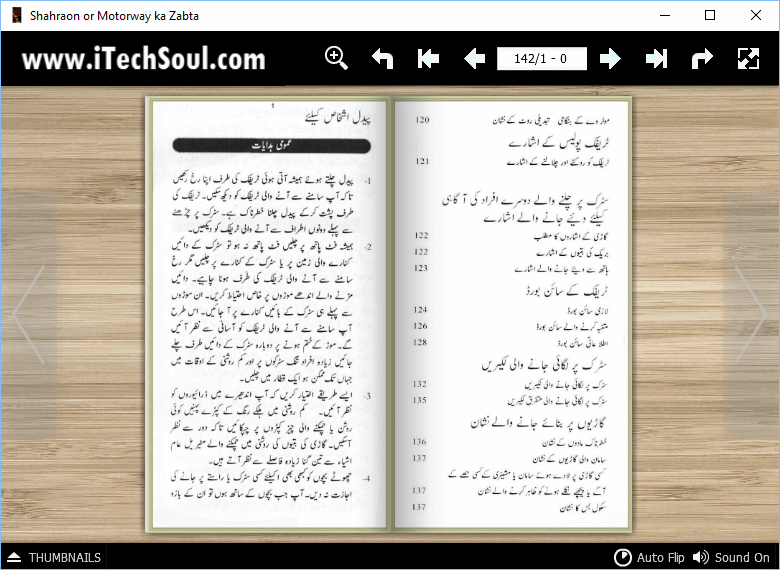 Shahraon or Motorway ka Zabta
www.iTechSoul.com
142/1 - 0
موٹر وے کے ہنگامی تبدیلی روٹ کے نشان 120
ٹریفک پولیس کے اشارے
ٹریفک کو روکنے اور چلانے کے اشارے 121
سڑک پر چلنے والے دوسرے افراد کی آگاہی
کیلئے دیئے جانے والے اشارے
گاڑی کے اشاروں کا مطلب 122
بریک کی بتیوں کے اشارے 122
ہاتھ سے دیئے جانے والے اشارے 123
ٹریفک کے سائن بورڈ
لازمی سائن بورڈ 124
متنبہ کرنے والے سائن بورڈ 126
اطلاعاتی سائن بورڈ 128
سڑک پر لگائی جانے والی لکیریں
سڑک پر لگائی جانے والی لکیریں 132
سڑک پر لگائی جانے والی متفرق لکیریں 135
گاڑیوں پر بنائے جانے والے نشان
خطرناک مادوں کے نشان 136
سامان والی گاڑیوں کے نشان 137
کسی گاڑی پر لادے ہوئے سامان یا مشینری کے کسی حصے کے
آگے یا پیچھے نکلے ہونے کو ظاہر کرنے والے نشان 137
سکول بس کا نشان 137
1
پیدل اشخاص کیلئے
عمومی ہدایات
1- پیدل چلتے ہوئے ہمیشہ آتی ہوئی ٹریفک کی طرف اپنا رخ رکھیں
تاکہ آپ سامنے سے آنے والی ٹریفک کو دیکھ سکیں۔ ٹریفک کی
طرف پشت کرکے پیدل چلنا خطرناک ہے۔ سڑک پر چڑھنے
سے پہلے دونوں اطراف سے آنے والی ٹریفک کو دیکھیں۔
2- ہمیشہ فٹ پاتھ پر چلیں فٹ پاتھ نہ ہو تو سڑک کے دائیں
کنارے والی زمین پر یا سڑک کے کنارے پر چلیں مگر رخ
سامنے سے آنے والی ٹریفک کی طرف ہونا چاہیے۔ دائیں
مڑنے والے اندھے موڑوں پر خاص احتیاط کریں۔ ان موڑوں
سے پہلے ہی سڑک کے بائیں کنارے پر آ جائیں۔ اس طرح
آپ سامنے سے آنے والی ٹریفک کو آسانی سے نظر آئیں
گے۔ موڑ کے ختم ہونے پر دوبارہ سڑک کے دائیں طرف چلے
جائیں زیادہ افراد تنگ سڑکوں پر اور کم روشنی کے اوقات میں
جہاں تک ممکن ہو ایک قطار میں چلیں۔
3- ایسے طریقے اختیار کریں کہ آپ اندھیرے میں ڈرائیوروں کو
نظر آئیں۔ کم روشنی میں ہلکے رنگ کے کپڑے پہنیں کوئی
روشن یا چمکنے والی چیز کپڑوں پر چپکائیں تاکہ دور سے نظر
آسکیں۔ گاڑی کی بتیوں کی روشنی میں چمکنے والے مٹیریل عام
اشیاء سے تین گنا زیادہ فاصلے سے نظر آتے ہیں۔
4- چھوٹے بچوں کو کبھی بھی اکیلئے کسی سڑک یا راستے پر جانے کی
اجازت نہ دیں۔ آپ جب بچوں کے ساتھ ہوں تو ان کے بازو
THUMBNAILS
Auto Flip
Sound On